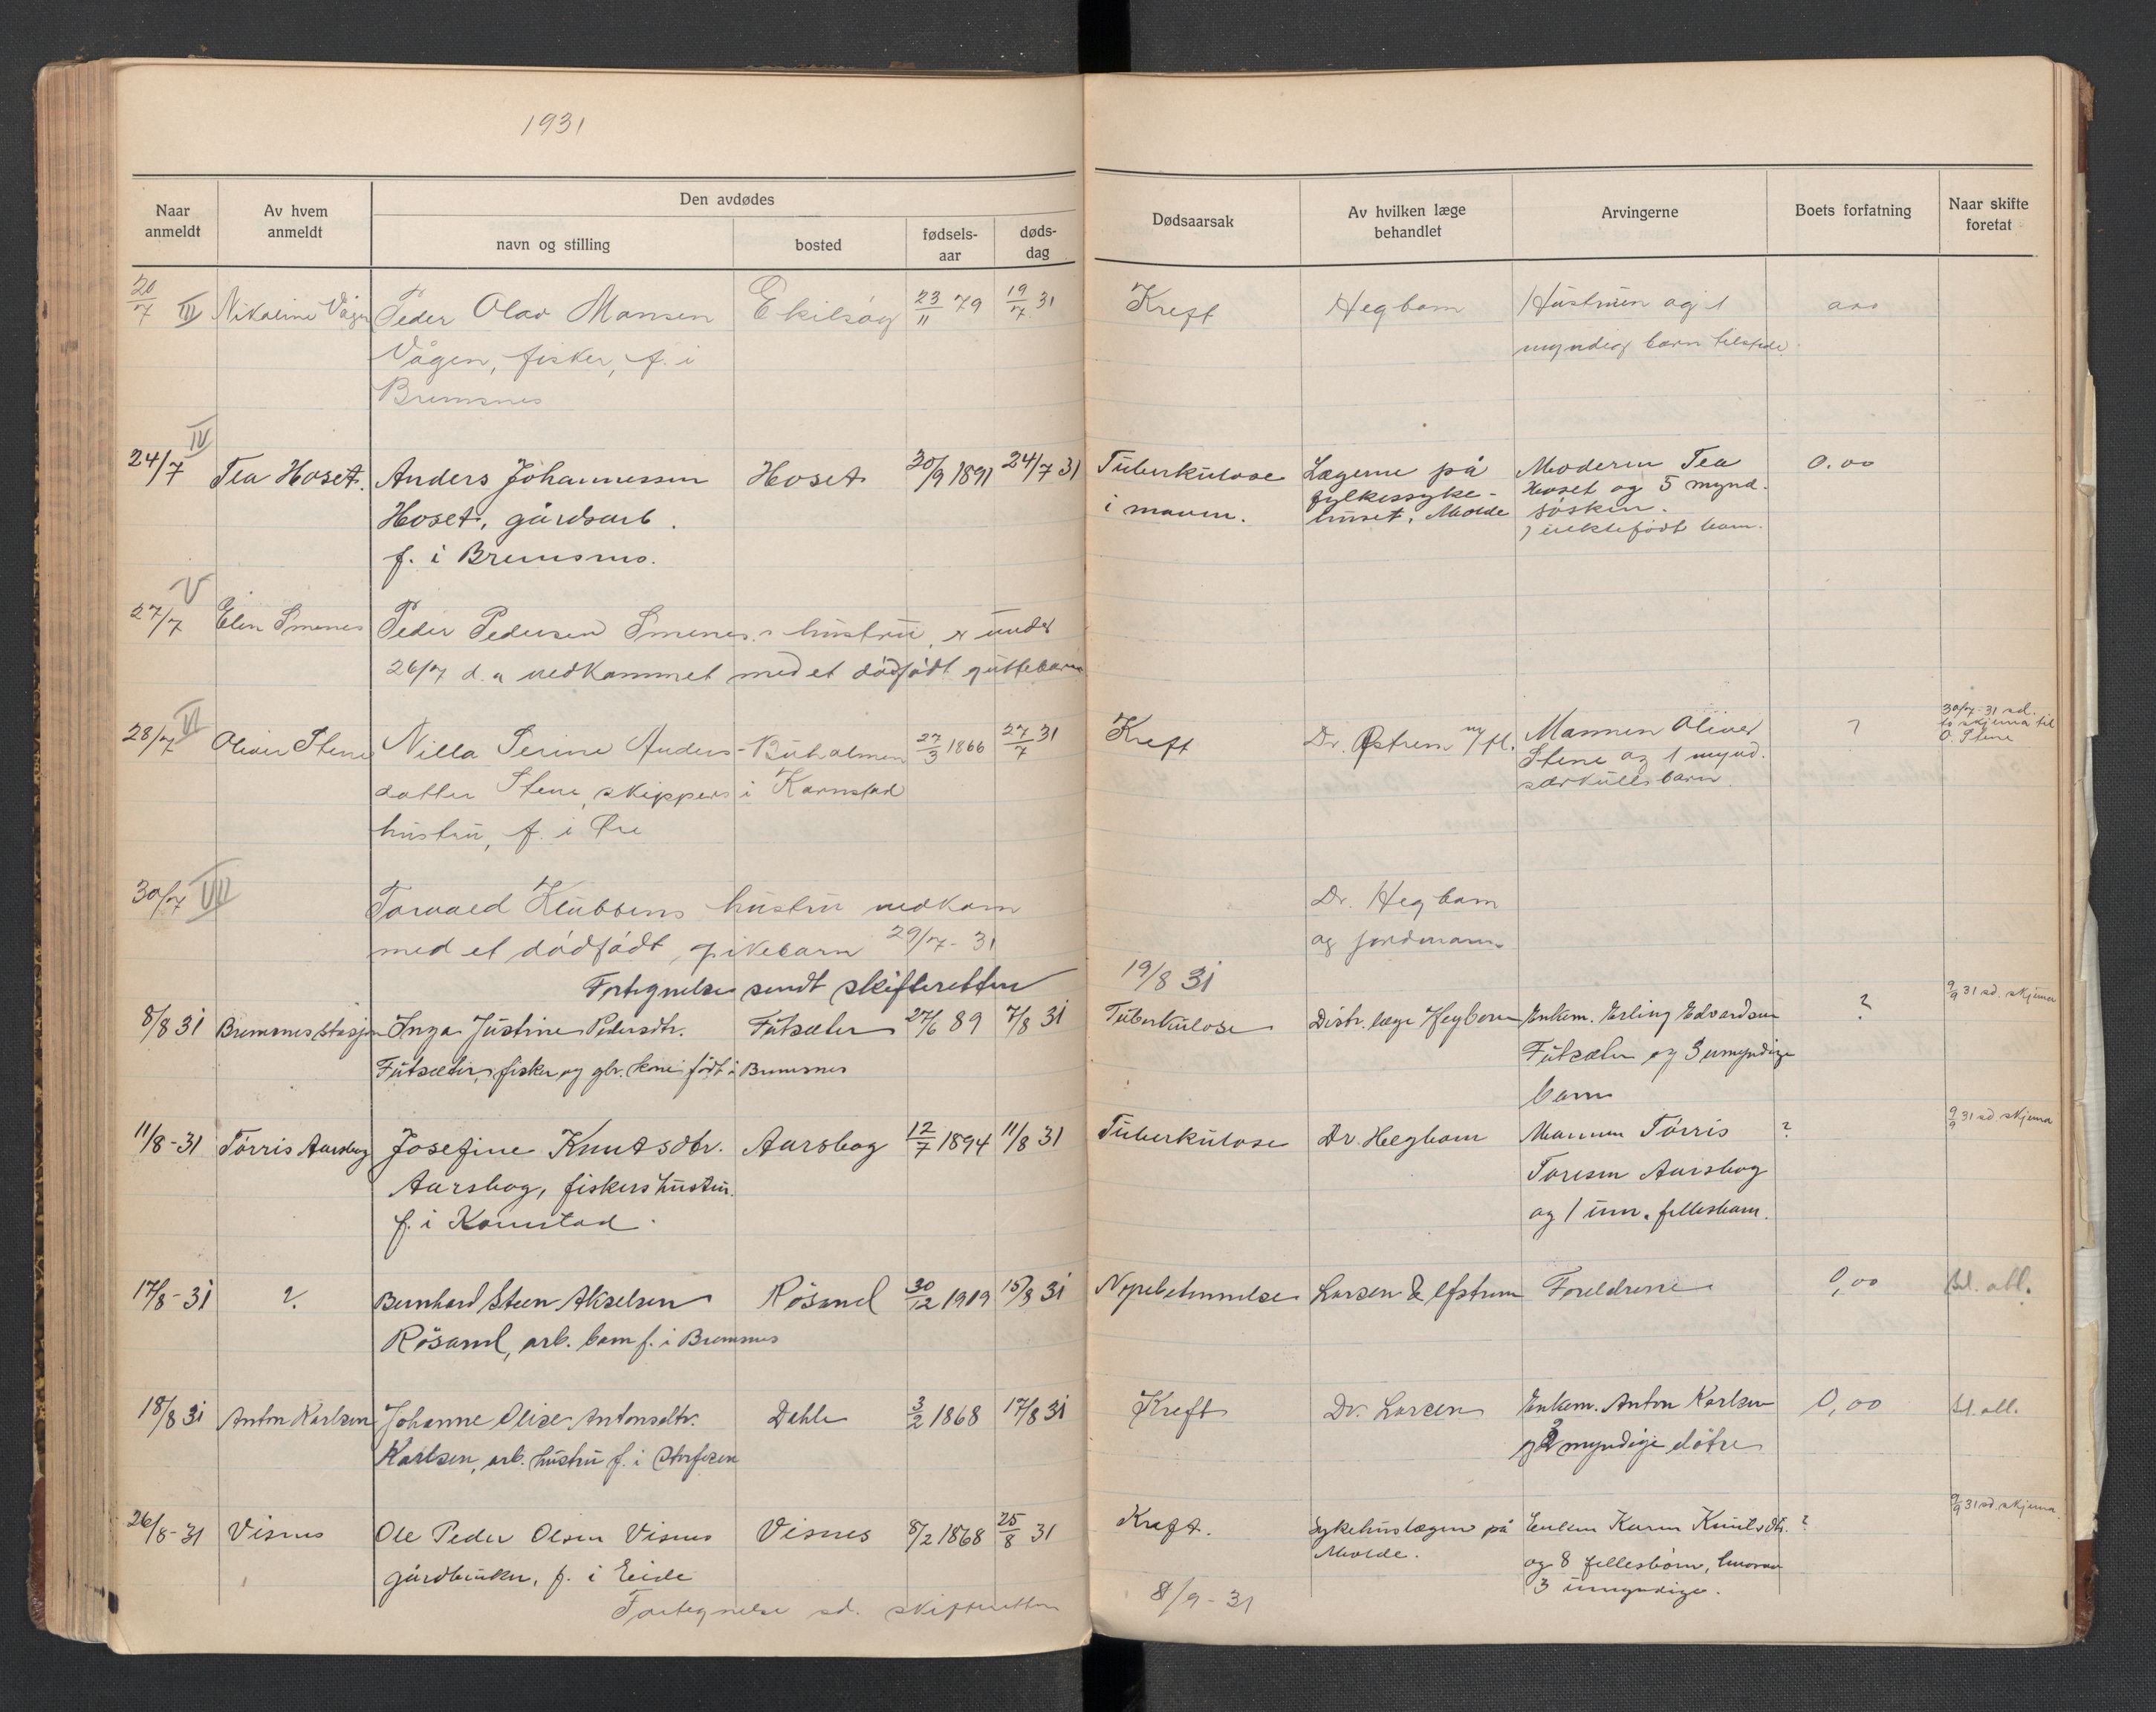 1931
Naar anmeldt
Av hvem anmeldt
Den avdødes
navn og stilling
bosted
fødsels-aar
døds-dag
Dødsaarsak
Av hvilken læge behandlet
Arvingerne
Boets forfatning
Naar skifte foretat
20/7 III Nikoline Vågen Peder Olav Monsen Ekilsøy 23/11 79 19/7 31 Kreft Hegbom Hustruen og 1
Vågen, fisker, f. i myndig barn tilstede.
Bremsnes
IV
24/7 Tea Hoset. Anders Johannessen Hoset 30/9 1891 24/7 31 Tuberkulose Lægerne på Moderen Tea 0.00
Hoset, gårdsarb. i maven. fylkessyke- Hoset og 5 mynd.
huset, Molde søsken.
f. i Bremsnes. 1 uektefødt barn.
V
27/7 Elen Smenes Peder Pedersen Smenes's hustru er under
26/7 d.a. nedkommet med et dødfødt guttebarn
28/7 VI Oliver Stene Nilla Serine Anders- Buholmen 27/3 1866 27/7 31 Kreft Dr. Østrem m/fl. Mannen Oliver ? 30/7-31 sd.
datter Stene, skippers i Kornstad Stene og 1 mynd. to skjema til
hustru, f. i Øre særkullsbarn. O. Stene
30/7 VII Torvald Klubbens hustru nedkom Dr. Hegbom
med et dødfødt pikebarn 29/7-31 og jordmoren
Fortegnelse sendt skifteretten 19/8 31
8/8 31 Bremsnes Stasjon Inga Justine Pedersdtr. Futsæter 27/6 89 7/8 31 Tuberkulose Distr. læge Hegbom Enkem. Erling Edvardsen ? 9/9 31 sd. skjema
Futsæter, fisker og gbr. kone født i Bremsnes Futsæter og 3 umyndige
barn
11/8-31 Tørris Aarsbog Josefine Knutsdtr. Aarsbog 12/7 1894 11/8 31 Tuberkulose Dr. Hegbom Mannen Tørris ? 9/9 31 sd skjema
Aarsbog, fiskers hustru. Toresen Aarsbog
f. i Kornstad. og 1 um. fellesbarn.
17/8-31 ? Bernhard Steen Akselsen Røsand 30/12 1919 15/8 31 Nyrebetennelse Larsen & Østrem Foreldrene 0,00 Bl. att.
Røsand, arb. barn f. i Bremsnes
18/8 31 Anton Karlsen Johanne Olise Antonsdtr. Dahle 3/2 1868 17/8 31 Kreft Dr. Larsen Enkem. Anton Karlsen 0,00 Bl. att.
Karlsen, arb. hustru f. i og 2 myndige døtre
26/8-31 Visnes Ole Peder Olsen Visnes Visnes 8/2 1868 25/8 31 Kreft. Sykehuslægen på Enken Karen Knutsdtr. ? 9/9 31 sd. skjema.
gårdbruker, f. i Eide Molde. og 8 fellesbørn, hvorav
3 umyndige.
Fortegnelse sd. skifteretten 8/9-31